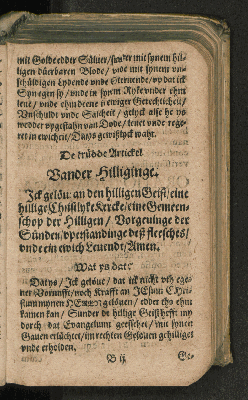 mit Golde edder Süluer/ sunder mit synem hil-
ligen düerbaren Blode/ vnde mit synem vn-
schüldigen Lydende vnde Steruende/ vp dat ick
Syn egen sy/ vnde in synem Ryke vnder ehm
leue/ vnde ehm deene in ewiger Gerechticheit/
Vnschuldt vnde Salicheit/ gelyck alse he ys
wedder vpgestahn van Dode/ leuet vnde rege-
ret in ewicheit/ Dat ys gewißlyck wahr.
De drüdde Artickel
Vander Hilliginge.
Ick gelöue an den hilligen Geist/ eine
hillige Christlyke Kercke/ eine Gemeen-
schop der Hilligen/ Vorgeuinge der
Sünden/ vperstandinge deß fleesches/
vnde ein ewich Leuendt/ Amen.
Wat ys dat?
Dat ys/ Ick gelöue/ dat ick nicht vth ege-
ner Vornunfft/ noch Krafft an JEsum CHri-
stum mynen HEren gelöuen/ edder tho ehm
kamen kan/ Sunder de hillige Geist hefft my
dorch dat Euangelium geesschet/ mit synen
Gauen erlüchtet/ im rechten Gelouen gehilliget
vnde erholden.
B ij Ge-